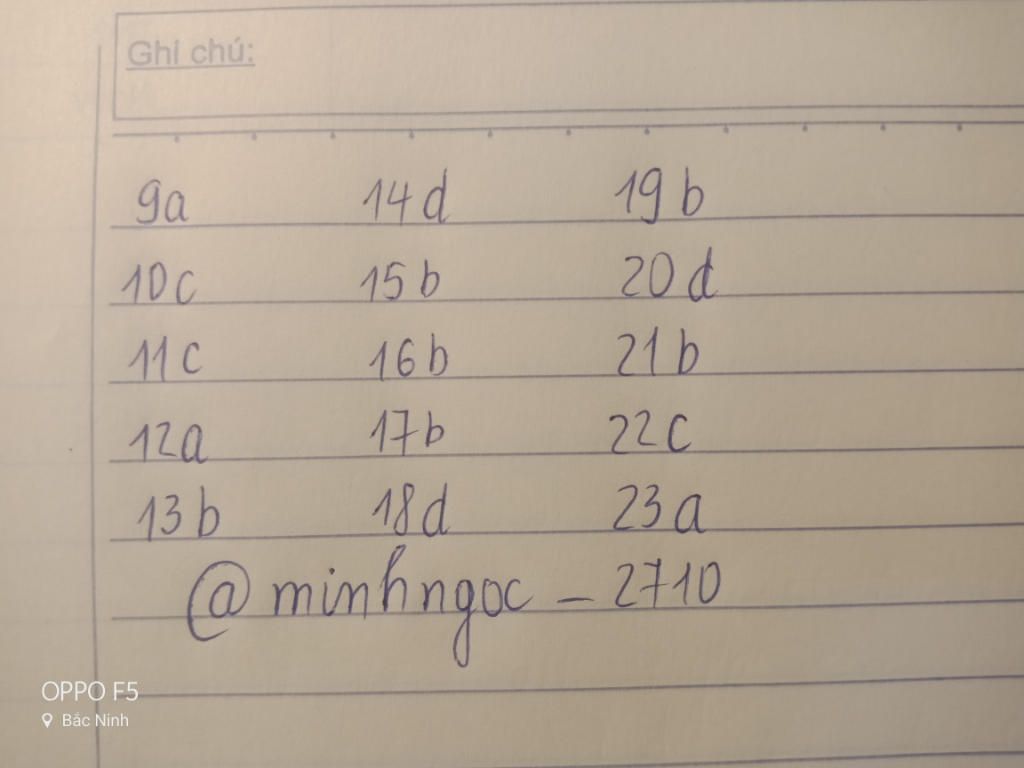 Ghi chú:
9a 14d 19b
10c 15b 20d
11c 16b 21b
12a 17b 22c
13b 18d 23a
@minhngoc_2710
OPPO F5
Bắc Ninh